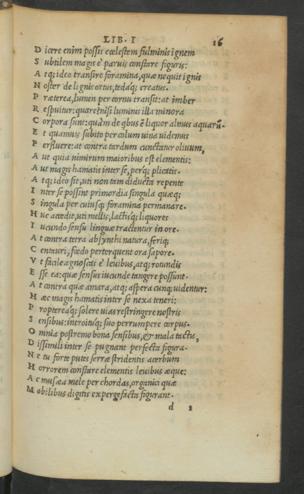 LIB. I 16
Dicere enim possis cœlestem fulminis ignem
Subtilem magis è paruis constare figuris:
Atq; ideo transire foramina, quæ nequit ignis
Noster de lignis ortus, tedaq; creatus.
Præterea, lumen per cornu transit: at imber
Respuitur: quare? nisi luminis illa minora
Corpora sunt: quàm de qbus ē liquor almus aquarū.
Et quamuis subito per colum uina uidemus
Perfluere: at contra tardum cunctatur oliuum,
Aut quia nimirum maioribus est elementis:
Aut magis hamatis inter se, perq; plicatis.
Atq; ideo fit, uti non tam diducta repente
Inter se possint primordia singula quæq;
Singula per cuiusq; foramina permanare.
Huc accedit, uti mellis, lactisq; liquores
Iucundo sensu linguæ tractentur in ore.
At contra tetra absynthi natura, feriq;
Centauri, fœdo pertorquent ora sapore.
Vt facile agnoscas è leuibus, atq; rotundis
Esse ea: quæ sensus iucunde tangere possunt.
At contra quæ amara, atq; aspera cunq; uidentur:
Hæc magis hamatis inter se nexa teneri:
Propterea q; solere uias rescindere nostris
Sensibus: introituq; suo perrumpere corpus.
Omnia postremo bona sensibus, & mala tactu,
Dissimili inter se pugnant perfecta figura.
Ne tu forte putes serræ stridentis acerbum
Horrorem constare elementis leuibus æque:
Ac musæa mele per chordas, organici quæ
Mobilibus digitis expergefacta figurant.
d 2